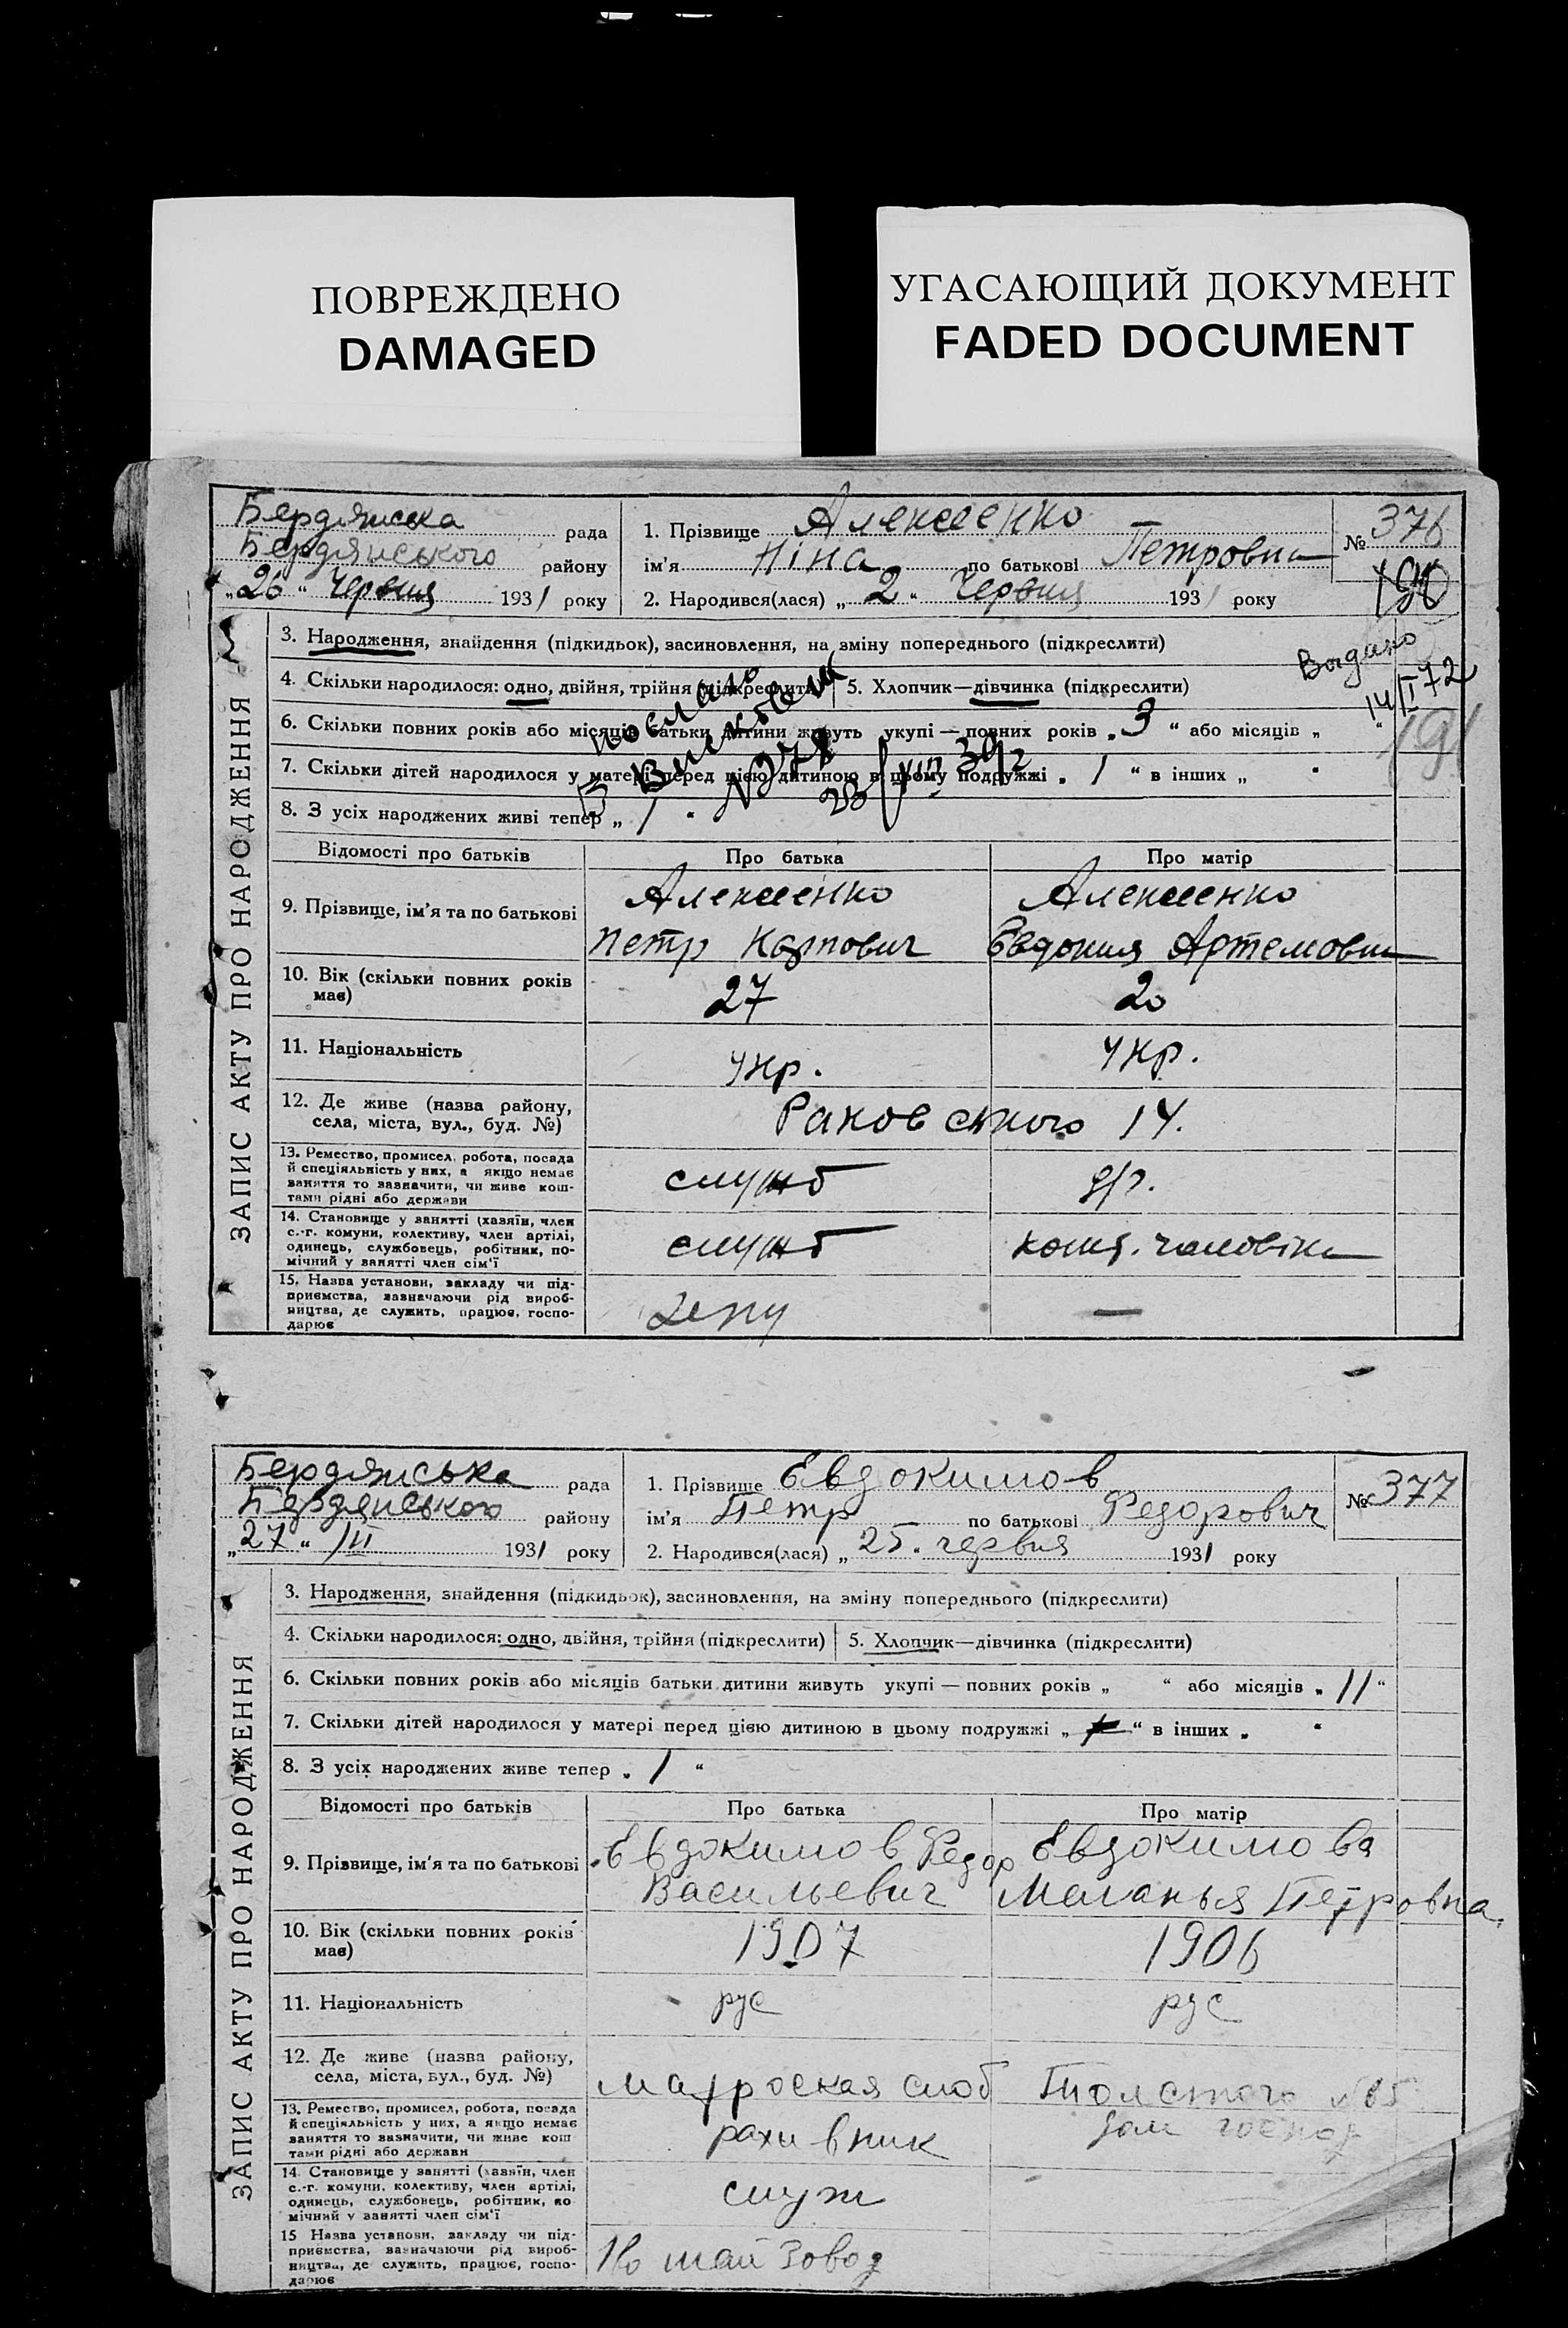 ПОВРЕЖДЕНО
DAMAGED
УГАСАЮЩИЙ ДОКУМЕНТ
FADED DOCUMENT
ЗАПИС АКТУ ПРО НАРОДЖЕННЯ
Бердянська рада
Бердянського району
„26“ Червня 1931 року
1. Прізвище Алексеенко
ім'я Ніна по батькові Петровна
2. Народився(лася) „2“ Червня 1931 року
№ 376
190
3. Народження, знайдення (підкидьок), засиновлення, на зміну попереднього (підкреслити)
Выдано
14/I 72
191
4. Скільки народилося: одно, двійня, трійня (підкреслити)
5. Хлопчик—дівчинка (підкреслити)
6. Скільки повних років або місяців батьки дитини живуть укупі — повних років „3“ або місяців „ “
7. Скільки дітей народилося у матері перед цією дитиною в цьому подружжі „1“ в інших „ “
8. З усіх народжених живі тепер „1“
Відомості про батьків
Про батька
Про матір
9. Прізвище, ім'я та по батькові
Алексеенко
Петр Карпович
Алексеенко
Евдокия Артемовна
10. Вік (скільки повних років має)
27
20
11. Національність
укр.
укр.
12. Де живе (назва району, села, міста, вул., буд. №)
Раковського 14.
13. Ремество, промисел, робота, посада й спеціяльність у них, а якщо немає заняття то зазначити, чи живе коштами рідні або держави
служб
д/г.
14. Становище у занятті (хазяїн, член с.-г. комуни, колективу, член артілі, одинець, службовець, робітник, помічний у занятті член сім'ї
служб
кошт. чоловіка
15. Назва установи, закладу чи підприємства, зазначаючи рід виробництва, де служить, працює, господарює
—
ЗАПИС АКТУ ПРО НАРОДЖЕННЯ
Бердянська рада
Бердянського району
„27“ 1931 року
1. Прізвище Евдокимов
ім'я Петр по батькові Федорович
2. Народився(лася) „25. червня 1931 року
№ 377
3. Народження, знайдення (підкидьок), засиновлення, на зміну попереднього (підкреслити)
4. Скільки народилося: одно, двійня, трійня (підкреслити)
5. Хлопчик—дівчинка (підкреслити)
6. Скільки повних років або місяців батьки дитини живуть укупі — повних років „ “ або місяців „11“
7. Скільки дітей народилося у матері перед цією дитиною в цьому подружжі „ “ в інших „ “
8. З усіх народжених живе тепер „1“
Відомості про батьків
Про батька
Про матір
9. Прізвище, ім'я та по батькові
Евдокимов Федор
Васильевич
Евдокимова
Меланья Петровна
10. Вік (скільки повних років має)
1907
1906
11. Національність
рус
рус
12. Де живе (назва району, села, міста, вул., буд. №)
матроская слоб Толстого
13. Ремество, промисел, робота, посада й спеціяльність у них, а якщо немає заняття то зазначити, чи живе коштами рідні або держави
рахивник
дом госпор
14. Становище у занятті (хазяїн, член с.-г. комуни, колективу, член артілі, одинець, службовець, робітник, помічний у занятті член сім'ї
служ
15 Назва установи, закладу чи підприємства, зазначаючи рід виробництва, де служить, працює, господарює
1го май Зовод